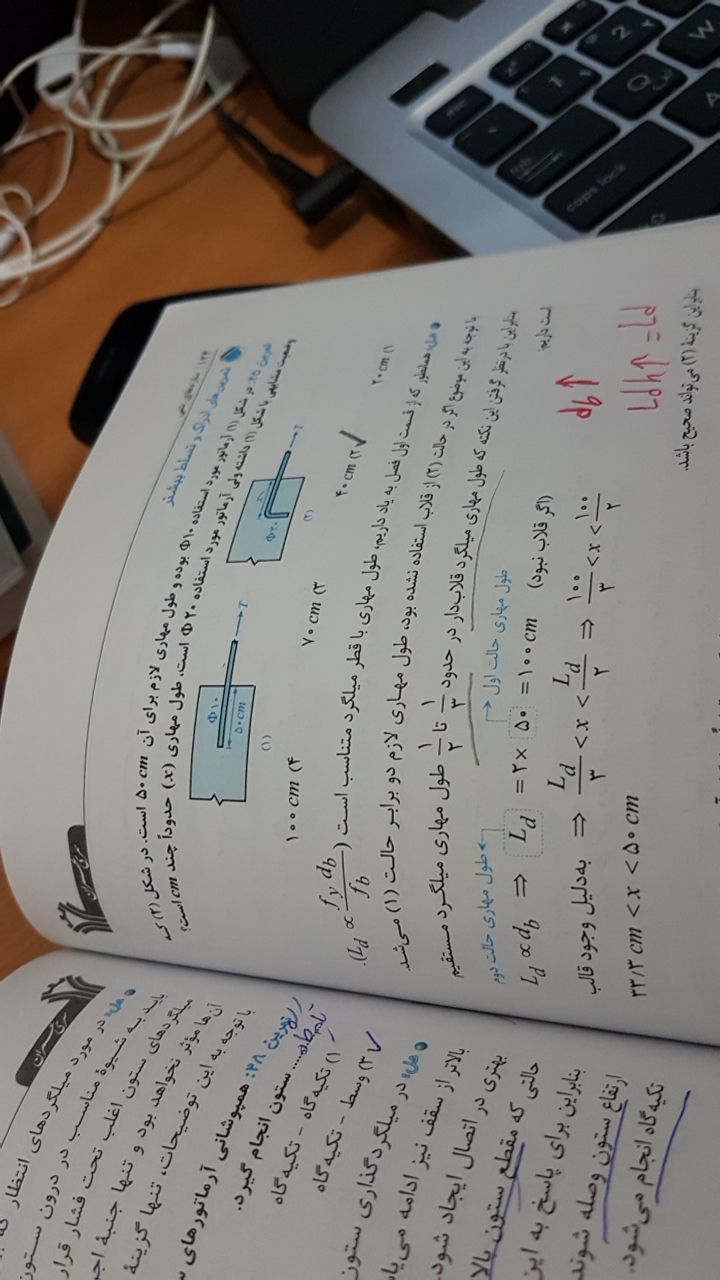 تمرین های ادراک و تسلط بیشتر
تمرین ۴۵: در شکل (۱) آرماتور مورد استفاده Φ۱۰ بوده و طول مهاری لازم برای آن ۵۰ cm است. در شکل (۲) که
وضعیت مشابهی با شکل (۱) داشته ولی آرماتور مورد استفاده Φ۲۰ است، طول مهاری (x) حدوداً چند cm است؟
Φ۱۰
۵۰cm
T
(۱)
Φ۲۰
x
T
(۲)
۲۰ cm (۱
۴۰ cm (۲
۷۰ cm (۳
۱۰۰ cm (۴
حل: همانطور که از قسمت اول فصل به یاد داریم، طول مهاری با قطر میلگرد متناسب است (L_d ∝ f_y d_b / f_b).
با توجه به این موضوع اگر در حالت (۲) از قلاب استفاده نشده بود، طول مهاری لازم دو برابر حالت (۱) می‌شد.
بنابراین با درنظر گرفتن این نکته که طول مهاری میلگرد قلاب‌دار در حدود ۱/۳ تا ۱/۲ طول مهاری میلگرد مستقیم
است داریم:
طول مهاری حالت اول
طول مهاری حالت دوم
L_d ∝ d_b ⇒ L_d = ۲ × ۵۰ = ۱۰۰ cm (اگر قلاب نبود)
به‌دلیل وجود قالب ⇒ L_d/۳ < x < L_d/۲ ⇒ ۱۰۰/۳ < x < ۱۰۰/۲
۳۳/۳ cm < x < ۵۰ cm
بنابراین گزینهٔ (۲) می‌تواند صحیح باشد.
db↑
Ldh↑ = Ld
سری عمران
سری عمران
حل: در مورد میلگردهای انتظار
باید به شیوهٔ مناسب در درون ستون
میلگردهای ستون اغلب تحت فشار قرار
آن‌ها مؤثر نخواهد بود و تنها جنبهٔ
با توجه به این توضیحات، تنها گزینهٔ
تمرین ۴۸: همپوشانی آرماتورهای
ستون انجام گیرد.
۱) تکیه‌گاه - تکیه‌گاه
۳) وسط - تکیه‌گاه
حل: در میلگردگذاری ستون
بالاتر از سقف نیز ادامه می‌یا
بهتری در اتصال ایجاد شود.
حالتی که مقطع ستون بالا
بنابراین برای پاسخ به این
ارتفاع ستون وصله شوند
تکیه‌گاه انجام می‌شود.
esc
tab
caps lock
Q
W
A
1
2